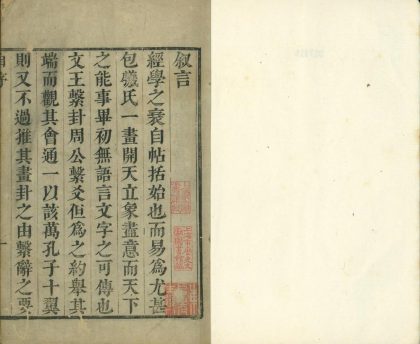 叙言
經學之衰自帖括始也而易爲尤甚
包羲氏一畫開天立象盡意而天下
之能事畢初無語言文字之可傳也
文王繫卦周公繫爻但爲之約舉其
端而觀其會通一以該萬孔子十翼
則又不過推其畫卦之由繫辭之要
自序
一